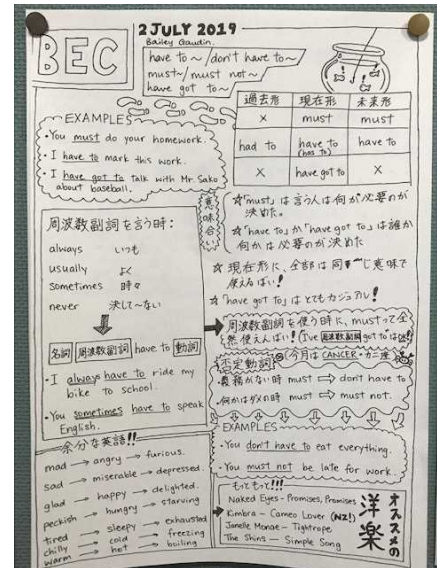 BEC
2 JULY 2019
Bailey Gaudin.
have to ~ / don't have to ~
must ~ / must not ~
have got to ~
EXAMPLES
・You must do your homework.
・I have to mark this work.
・I have got to talk with Mr. Sako
about baseball.
過去形 現在形 未来形
× must must
had to have to (has to) have to
× have got to ×
意味合い
☆「must」は言う人は何が必要のが
決めた。
☆「have to」か「have got to」は誰か
何かは必要のが決めた
☆ 現在形に、全部は同じ意味で
使えるばい!
☆「have got to」はとてもカジュアル!
周波数副詞を言う時:
always いつも
usually よく
sometimes 時々
never 決して~ない
名詞 周波数副詞 have to 動詞
・I always have to ride my
bike to school.
・You sometimes have to speak
English.
周波数副詞を使う時に、mustって全
然使えんばい! (I've 周波数副詞 got to はOK!)
否定動詞 (今月は CANCER・カニ座)
・義務がない時 must ⇨ don't have to
・何かはダメの時 must ⇨ must not.
EXAMPLES
・You don't have to eat everything.
・You must not be late for work.
余分な英語!!
mad → angry → furious.
sad → miserable → depressed.
glad → happy → delighted.
peckish → hungry → starving
tired → sleepy → exhausted
chilly → cold → freezing
warm → hot → boiling
もっともっと!!!
Naked Eyes - Promises, Promises
Kimbra - Cameo Lover (NZ!)
Janelle Monae - Tightrope
The Shins - Simple Song
オススメの
洋楽